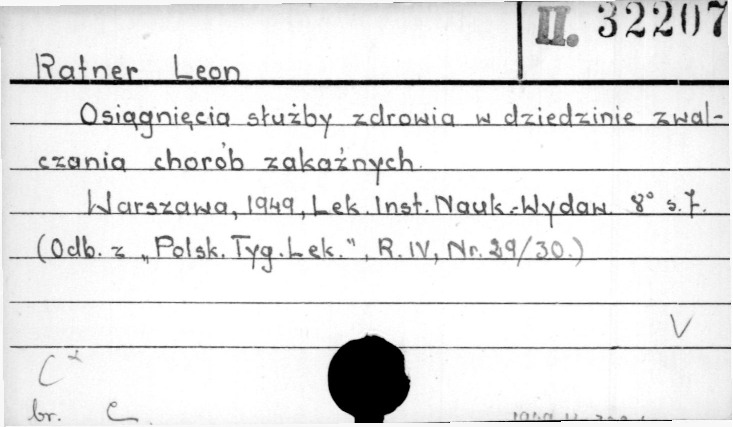 II. 32207
Ratner Leon
Osiągnięcia służby zdrowia w dziedzinie zwal-
czania chorób zakaźnych.
Warszawa, 1949, Lek. Inst. Nauk.-Wydaw. 8° s. 7.
(Odb. z „Polsk. Tyg. Lek.", R. IV, Nr. 29/30.)
V
C
br. C.
1949